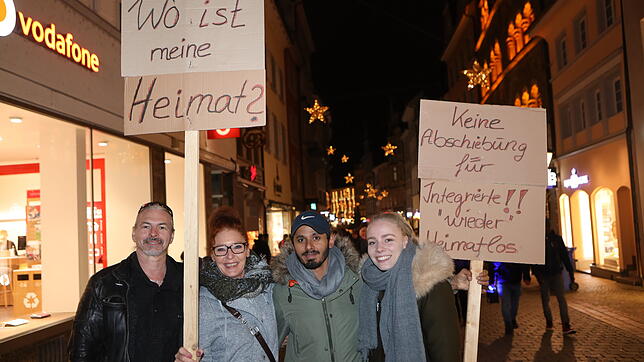 vodafone
Wo ist
meine
Heimat?
Keine
Abschiebung
für
Integrierte!!
"wieder"
Heimatlos